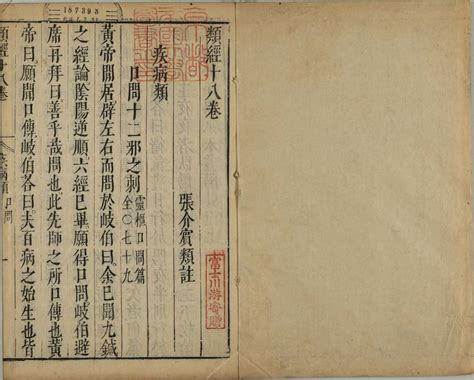 187393
類經十八卷
張介賓類註
疾病類
口問十二邪之刺
靈樞口問篇
全〇七十九
黃帝閒居辟左右而問於岐伯曰余已聞九鍼
之經論陰陽逆順六經已畢願得口問岐伯避
席再拜曰善乎哉問也此先師之所口傳也黃
帝曰願聞口傳岐伯荅曰夫百病之始生也皆
類經十八卷
疾病類 口問
富士川游寄贈